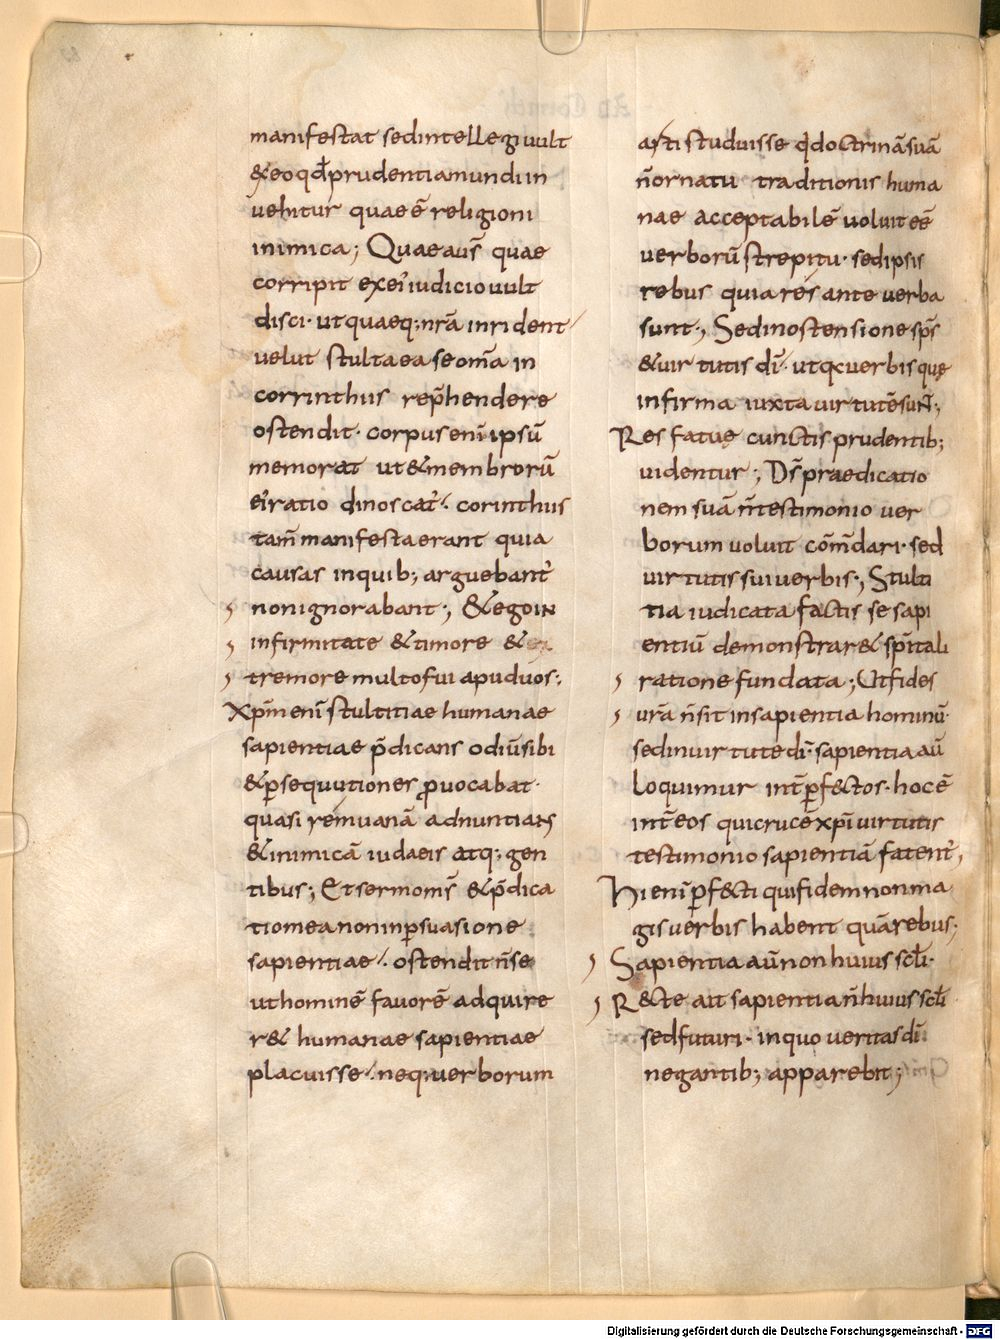 manifestat sed intellegi vult
& eo qđ prudentia mundi in
vehitur quae ē religioni
inimica; Quae aūs quae
corripit ex ei iudicio vult
disci· ut quaeq; nr̄a inrident
velut stulta ea se om̄a in
corrinthiis rep̄hendere
ostendit· corpus enī ipsū
memorat ut & membrorū
ei ratio dinoscat̄· corinthiis
tam̄ manifesta erant quia
causas in quib; arguebant̄
non ignorabant; & ego in
infirmitate & timore &
tremore multo fui apud vos;
Xpm̄ enī stultitiae humanae
sapientiae p̄dicans odiū sibi
& ꝑsequutiones ꝓvocabat·
quasi rem uanā adnuntians
& inimicā iudaeis atq; gen
tibus; Et sermo m̄s & p̄dica
tio mea non in ꝑsuasione
sapientiae· ostendit n̄ se
ut hominē favorē adquire
r& humanae sapientiae
placuisse· neq; verborum
asti studuisse qđ doctrinā suā
n̄ ornatu traditionis huma
nae acceptabilē voluit eē
verborū strepitu· sed ipsis
rebus quia res ante verba
sunt; Sed in ostensione sp̄s
& virtutis dī· ut q verbis que
infirma iuxta virtutē sun̄;
Res fatue cunctis prudentib;
videntur; Ds̄ praedicatio
nem suā n̄ testimonio ver
borum voluit com̄dari· sed
virtutis sui verbis; Stulti
tia iudicata factis se sapi
entiū demonstrar& sp̄itali
ratione fundata; Ut fides
vr̄a n̄ sit in sapientia hominū·
sed in virtute dī· sapientia aū
loquimur int̄ ꝑf&ctos· hoc ē
int̄ eos qui crucē xp̄i virtutis
testimonio sapientiā fatent̄;
Hi enī ꝑf&cti qui fidem non ma
gis verbis habent quā rebus;
Sapientia aū non huius scl̄i·
R&cte ait sapientia n̄ huius scl̄i
sed futuri· in quo veritas dī
negantib; apparebit;
Digitalisierung gefördert durch die Deutsche Forschungsgemeinschaft - DFG